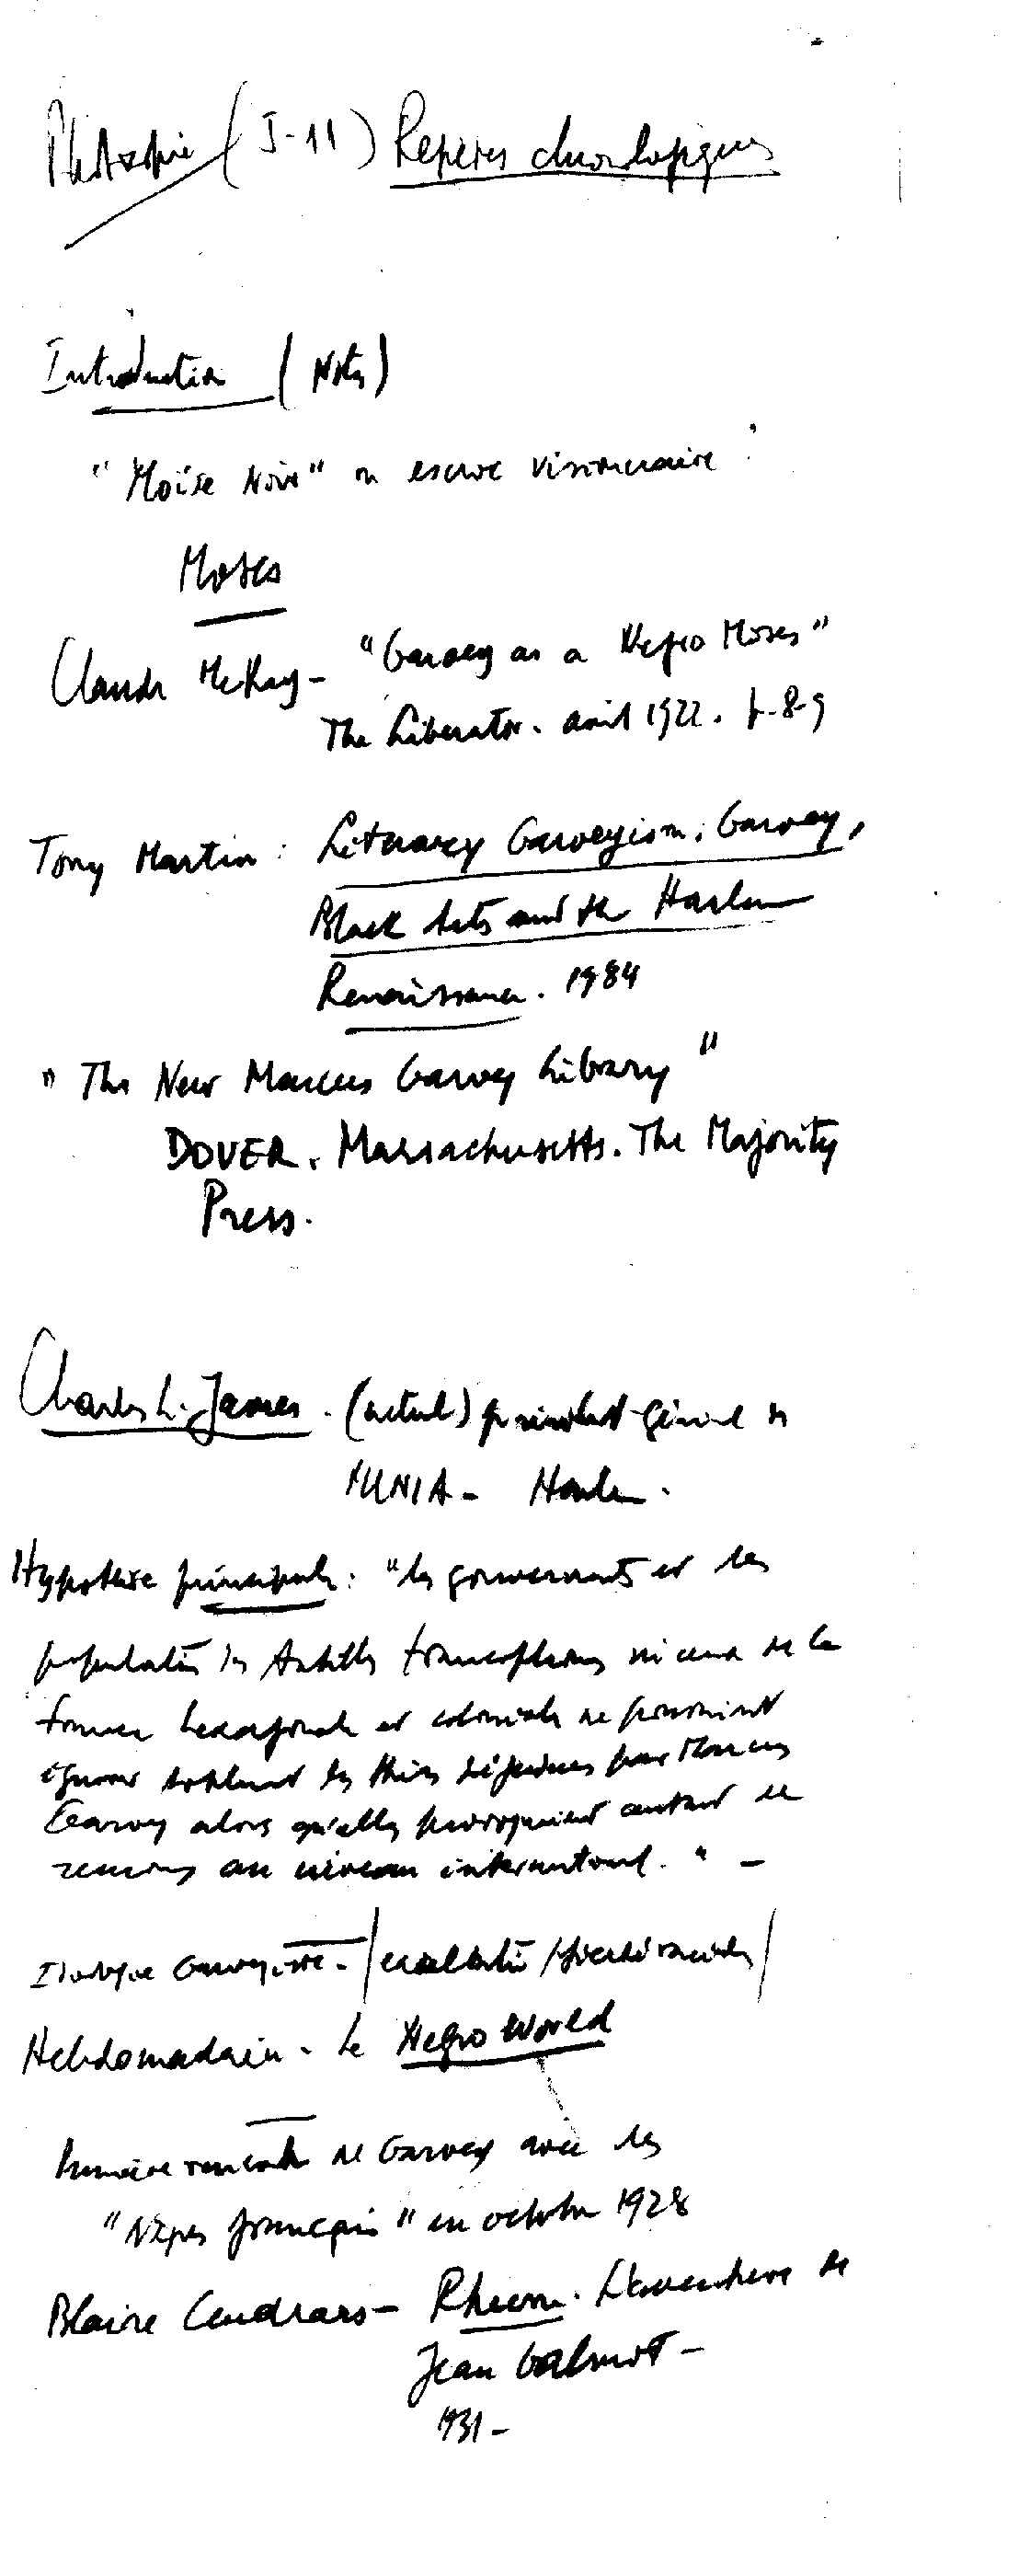 Photocopie (I-11) Repères chronologiques
Introduction (Notes)
"Moïse Noir" ou escroc visionnaire
Moses
Claude McKay - "Garvey as a Negro Moses"
The Liberator. avril 1922. p. 8-9
Tony Martin : Literary Garveyism. Garvey,
Black Arts and the Harlem
Renaissance. 1984
"The New Marcus Garvey Library"
DOVER. Massachusetts. The Majority
Press.
Charles L. James. (actuel) président-général de
l'UNIA - Harlem.
Hypothèse principale : "les gouvernants et les
populations des Antilles francophones ni ceux de la
France hexagonale et coloniale ne pouvaient
ignorer totalement les thèses défendues par Marcus
Garvey alors qu'elles provoquaient autant de
remous au niveau international." -
Idéologie Garveyiste. /exaltation/fierté raciale/
Hebdomadaire - Le Negro World
Première rencontre de Garvey avec les
"Nègres français" en octobre 1928
Blaise Cendrars - Rhum. L'aventure de
Jean Galmot -
1931 -